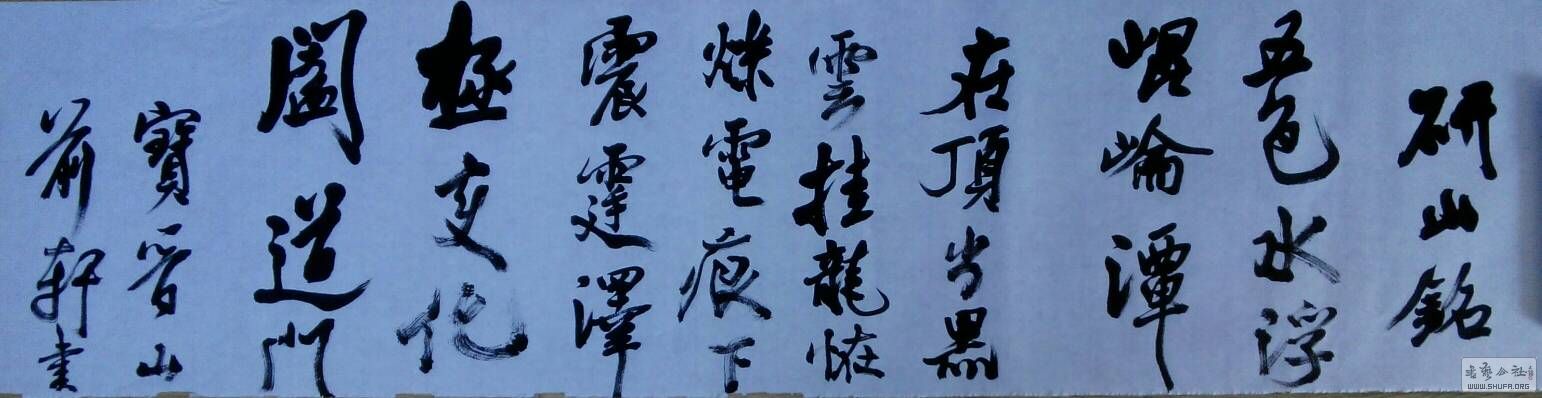 研山銘
五色水浮
崐崘潭
在頂出黑
雲挂龍恠
爍電痕下
震霆澤
極变化
闔道門
寶晋山
前軒書
書藝公社
WWW.SHUFA.ORG